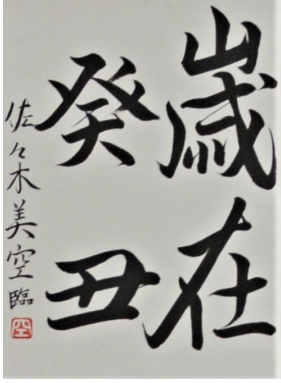 歳在
癸丑
佐々木美空臨
空